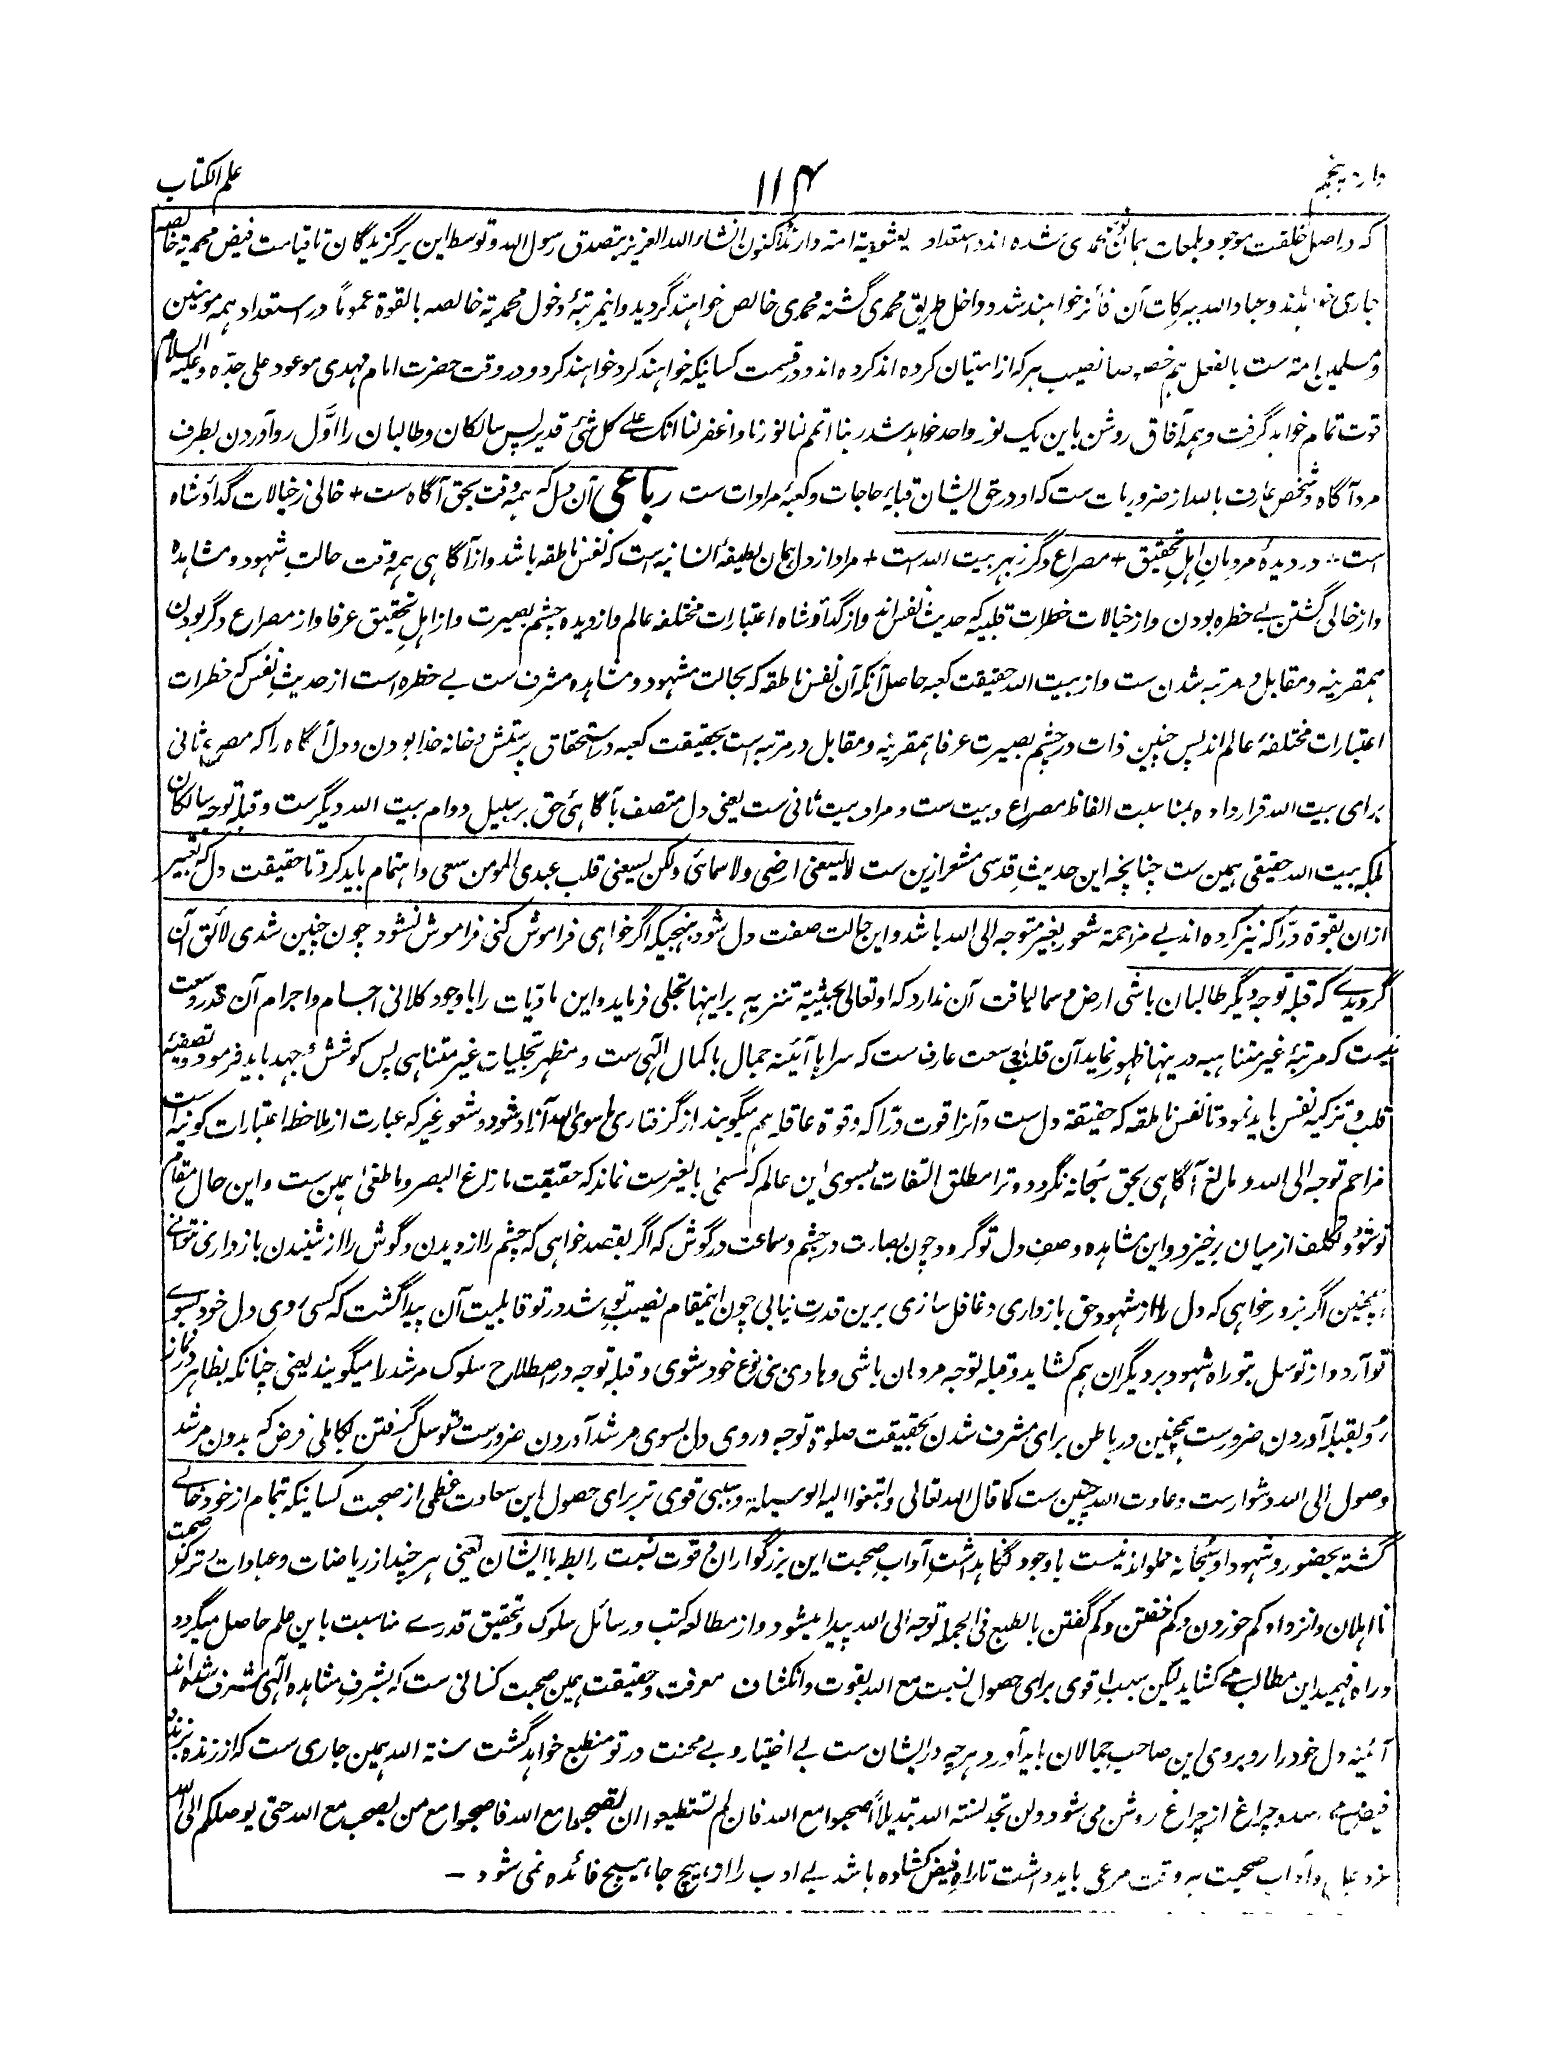 وارد پنجم
۱۱۴
علم الکتاب
که در اصل خلقت موجود بلمعات همان نور محمدی شده اند و استعداد یعشوبیة امته دارند اکنون انشاء الله العزیز بتصدق رسول الله و توسط این برگزیدگان تا قیامت فیض محمدیة خالصه
جاری خواهد ماند و عباد الله ببرکات آن فائز خواهند شد و داخل طریق محمدی گشته محمدی خالص خواهند گردید و اینمرتبۀ دخول محمدیة خالصه بالقوة عموماً در استعداد همه مومنین
و مسلمین امت ست بالفعل هم خصوصا نصیب هر که از امتیان کرده اند کرده اند و در قسمت کسانیکه خواهند کرد خواهند کرد و در وقت حضرت امام مهدی موعود علی جده و علیه السلام
قوت تمام خواهد گرفت و همه آفاق روشن باین یک نور واحد خواهد شد ربنا اتمم لنا نورنا واغفر لنا انک علی کل شئ قدیر پس سالکان و طالبان را اوّل رو آوردن بطرف
مرد آگاه و شخص عارف بالله از ضروریات ست که او در حق ایشان قبلۀ حاجات و کعبۀ مرادات ست رباعی آن دل که همه وقت بحق آگاه ست + خالی ز خیالات گدا و شاه
است + در دیدۀ مردمانِ اهلِ تحقیق + مصراع دگر ز بهر بیت الله است + مراد از دل همان لطیفۀ انسانیه است که نفس ناطقه باشد و از آگاهی همه وقت حالتِ شهود و مشاهده
و از خالی گشتن بے خطره بودن و از خیالات خطرات قلبیه که حدیث نفس اند و از گدا و شاه اعتبارات مختلفه عالم و از دیده چشم بصیرت و از اهل تحقیق عرفا و از مصراع دگر بودن
همقرینه و مقابل در مرتبه شدن ست و از بیت الله حقیقت کعبه حاصل آنکه آن نفس ناطقه که بحالت شهود و مشاهده مشرف ست بے خطره است از حدیث نفس که خطرات
اعتبارات مختلفۀ عالم اند پس چنین ذات در چشم بصیرت عرفا همقرینه و مقابل در مرتبه است بحقیقت کعبه در استحقاق پرستش و خانه خدا بودن و دل آگاه را که مصرعۀ ثانی
برای بیت الله قرار داده بمناسبت الفاظ مصراع و بیت ست و مراد بیت ثانی ست یعنی دل متصف بآگاهئ حق بر سبیل دوام بیت الله دیگر ست و قبلۀ توجه سالکان
بلکه بیت الله حقیقی همین ست چنانچه این حدیث قدسی مشعر ازین ست لا یسعنی ارضی ولا سمائی ولکن یسعنی قلب عبدی المومن سعی و اهتمام باید کرد تا حقیقت دل که تعبیر
ازان بقوة درّاکه نیز کرده اند بے مزاحمة شعور بغیر متوجه الی الله باشد و این حالت صفت دل شود بنهجیکه اگر خواهی فراموش کنی فراموش نشود چون چنین شدی لائق آن
گردیدے که قبله توجه دیگر طالبان باشی ارض و سما لیاقت آن ندارد که او تعالی بحیثیة تنزیهیه براینها تجلی فرماید و این مادیات را با وجود کلانی اجسام و اجرام آن قدر وسعت
نیست که مرتبۀ غیر متناهیه درینها ظهور نماید آن قلب با وسعت عارف ست که سراپا آئینه جمال با کمال الٓهی ست و مظهر تجلیات غیر متناهی پس کوشش و جهد باید فرمود و تصفیۀ
قلب و تزکیه نفس باید نمود تا نفس ناطقه که حقیقة دل ست و آنرا قوت درّاکه و قوة عاقله هم میگویند از گرفتاری ما سوی الله آزاد شود و شعور غیر که عبارت از ملاحظه اعتبارات کونیه است
مزاحم توجه الی الله و مانع آگاهی بحق سُبحانه نگردد و ترا مطلق التفات بسوی این عالم که مسمی بالغیر ست نماند که حقیقت ما زاغ البصر وما طغی همین ست و این حال مقام
تو شود و تکلف از میان برخیزد و این مشاهده وصف دل تو گردد چون بصارت در چشم و سماعت در گوش که اگر بقصد خواهی که چشم را از دیدن و گوش را از شنیدن بازداری نتوانے
همچنین اگر بزور خواهی که دل را از شهود حق بازداری و غافل سازی برین قدرت نیابی چون اینمقام نصیب تو شد در تو قابلیت آن پیدا گشت که کسی روی دل خود بسوے
تو آرد و از توسل بتو راه شهود بر دیگران هم کشاید و قبله توجه مردمان باشی و هادی بنی نوع خود شوی و قبلۀ توجه در اصطلاح سلوک مرشد را میگویند یعنی چنانکه بظاهر در نماز
رُو بقبله آوردن ضرورست همچنین در باطن برای مشرف شدن بحقیقت صلوة توجه و روی دل بسوی مرشد آوردن ضرورست و توسل گرفتن بکاملی فرض که بدون مرشد
وصول الی الله دشوار ست و عادت الله چنین ست کما قال الله تعالی وابتغوا الیه الوسیلة و سببی قوی تر برای حصول این سعادت عظمی از صحبت کسانیکه بتمام از خود خالے
گشته بحضور و شهود او سُبحانه مملو اند نیست با وجود نگاهداشت آداب صحبت این بزرگواران و قوت نسبت رابطه با ایشان یعنی هر چند از ریاضات و عبادات و ترک صحبت
نا اهلان و انزوا و کم خوردن و کم خفتن و کم گفتن بالطبع فی الجمله توجه الی الله پیدا میشود و از مطالعه کتب و رسائل سلوک و تحقیق قدرے مناسبت باین علم حاصل میگردد
و راه فهمید این مطالب مے کشاید لیکن سببِ قوی برای حصول نسبت مع الله بقوت و انکشاف معرفت و حقیقت همین صحبت کسانی ست که بشرف مشاهده الٓهی مشرف شده اند
آئینه دل خود را روبروی این صاحب جمالان باید آورد هرچه در ایشان ست بے اختیار و بے محنت در تو منطبع خواهد گشت سنة الله همین جاری ست که از زنده بزنده
فیض می رسد و چراغ از چراغ روشن می شود ولن تجد لسنة الله تبدیلاً اصحبوا مع الله فان لم تستطیعوا ان تصحبوا مع الله فاصحبوا مع من یصحب مع الله حتی یوصلکم الی الله
عز و جل و آداب صحبت همه وقت مرعی باید داشت تا راهِ فیض کشاده باشد بے ادب را از هیچ جا هیچ فائده نمی شود —